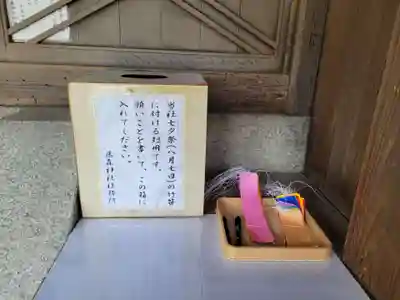 当社七夕祭(八月七日)の竹笹
に付ける短冊です。
願いごとを書いて、この箱に
入れてください。